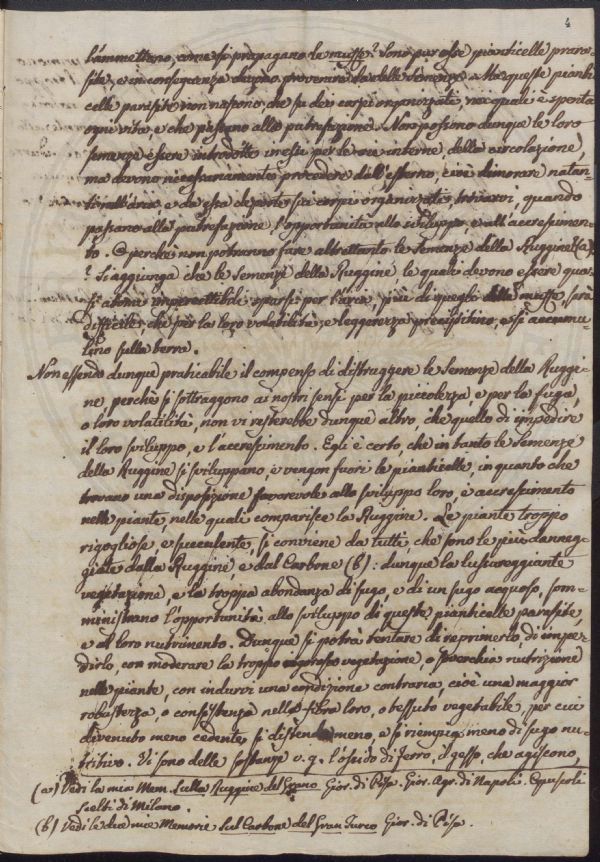 4
l'ammettono, come si propagano le muffe? Sono pur esse pianticelle paras-
site, e in conseguenza devono provenire da delle semenze. Ma queste pianti
celle parasite non nascono, che su dei corpi organizzati, nei quali è spenta
ogni vita, e che passano alla putrefazione. Non possono dunque le loro
semenze essere introdotte in essi per le vie interne, della circolazione,
ma devono necessariamente procedere dall'esterno, cioè dimorare natan-
ti nell'aria, e da essa deposte sui corpi organizzati, trovarvi, quando
passano alla putrefazione l'opportunità allo sviluppo, e all'accrescimen-
to. E perchè non potranno fare altrettanto le semenze della Ruggine (a)
? Si aggiunga che le semenze della Ruggine le quali devono essere qua-
si atomi impercettibili sparsi per l'aria, più di quegli delle muffe, sarà
difficile, che per la loro volatilità, e leggerezza precipitino, e si accumu-
lino sulla terra.
Non essendo dunque praticabile il compenso di distruggere le semenze della Ruggi-
ne, perchè si sottraggono ai nostri sensi per la piccolezza, e per la fuga,
o loro volatilità, non vi resterebbe dunque altro, che quello di impedire
il loro sviluppo, e l'accrescimento. Egli è certo, che in tanto le semenze
della Ruggine si sviluppano, e vengon fuori le pianticelle, in quanto che
trovano una disposizione favorevole allo sviluppo loro, e accrescimento
nelle piante, nelle quali comparisce la Ruggine. Le piante troppo
rigogliose, e succulente, si conviene da tutti, che sono le più danneg-
giate dalla Ruggine, e dal Carbone (b): dunque la lussureggiante
vegetazione, e la troppa abondanza di sugo, e di un sugo acquoso, som-
ministrano l'opportunità allo sviluppo di queste pianticelle parasite,
e al loro nutrimento. Dunque si potrà tentare di reprimerlo, di impe-
dirlo, con moderare la troppo vegetazione, o soverchia nutrizione
nelle piante, con indurvi una condizione contraria, cioè una maggior
robustezza, o consistenza nella fibra loro, o tessuto vegetabile, per cui
divenuto meno cedente, si distende meno, e si riempia meno di sugo nu-
tritivo. Vi sono delle sostanze v. g. l'ossido di ferro, il gesso, che agiscono,
(a) Vedi la mia Mem. sulla Ruggine del Grano Gior. di Pisa. Gior. Agr. di Napoli. Opuscoli
scelti di Milano.
(b) Vedi le due mie Memorie sul Carbone del Gran Turco Gior. di Pisa.